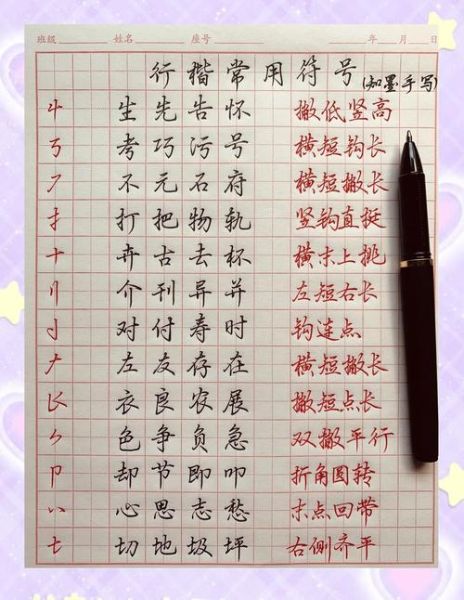 班级 姓名 座号 年 月 日
行楷常用符号(知墨手写)
生先告怀 撇低竖高
考巧污号 横短钩长
不元石府 横短撇长
打把物轨 竖钩直挺
卉古去杯 横末上挑
介刊异并 左短右长
对付寿时 钩连点
左友存在 横短撇长
衣良农展 撇短点长
色争负急 双撇平行
却节即叩 折角圆转
心思志愁 末点回带
切地圾坪 右侧齐平